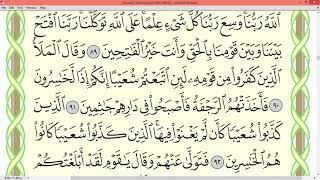 ٱللَّهُ رَبُّنَا وَسِعَ رَبُّنَا كُلَّ شَىْءٍ عِلْمًا عَلَى ٱللَّهِ تَوَكَّلْنَا رَبَّنَا ٱفْتَحْ
بَيْنَنَا وَبَيْنَ قَوْمِنَا بِٱلْحَقِّ وَأَنتَ خَيْرُ ٱلْفَـٰتِحِينَ ٨٩ وَقَالَ ٱلْمَلَأُ
ٱلَّذِينَ كَفَرُوا۟ مِن قَوْمِهِۦ لَئِنِ ٱتَّبَعْتُمْ شُعَيْبًا إِنَّكُمْ إِذًا لَّخَـٰسِرُونَ
٩٠ فَأَخَذَتْهُمُ ٱلرَّجْفَةُ فَأَصْبَحُوا۟ فِى دَارِهِمْ جَـٰثِمِينَ ٩١ ٱلَّذِينَ
كَذَّبُوا۟ شُعَيْبًا كَأَن لَّمْ يَغْنَوْا۟ فِيهَا ٱلَّذِينَ كَذَّبُوا۟ شُعَيْبًا كَانُوا۟
هُمُ ٱلْخَـٰسِرِينَ ٩٢ فَتَوَلَّىٰ عَنْهُمْ وَقَالَ يَـٰقَوْمِ لَقَدْ أَبْلَغْتُكُمْ